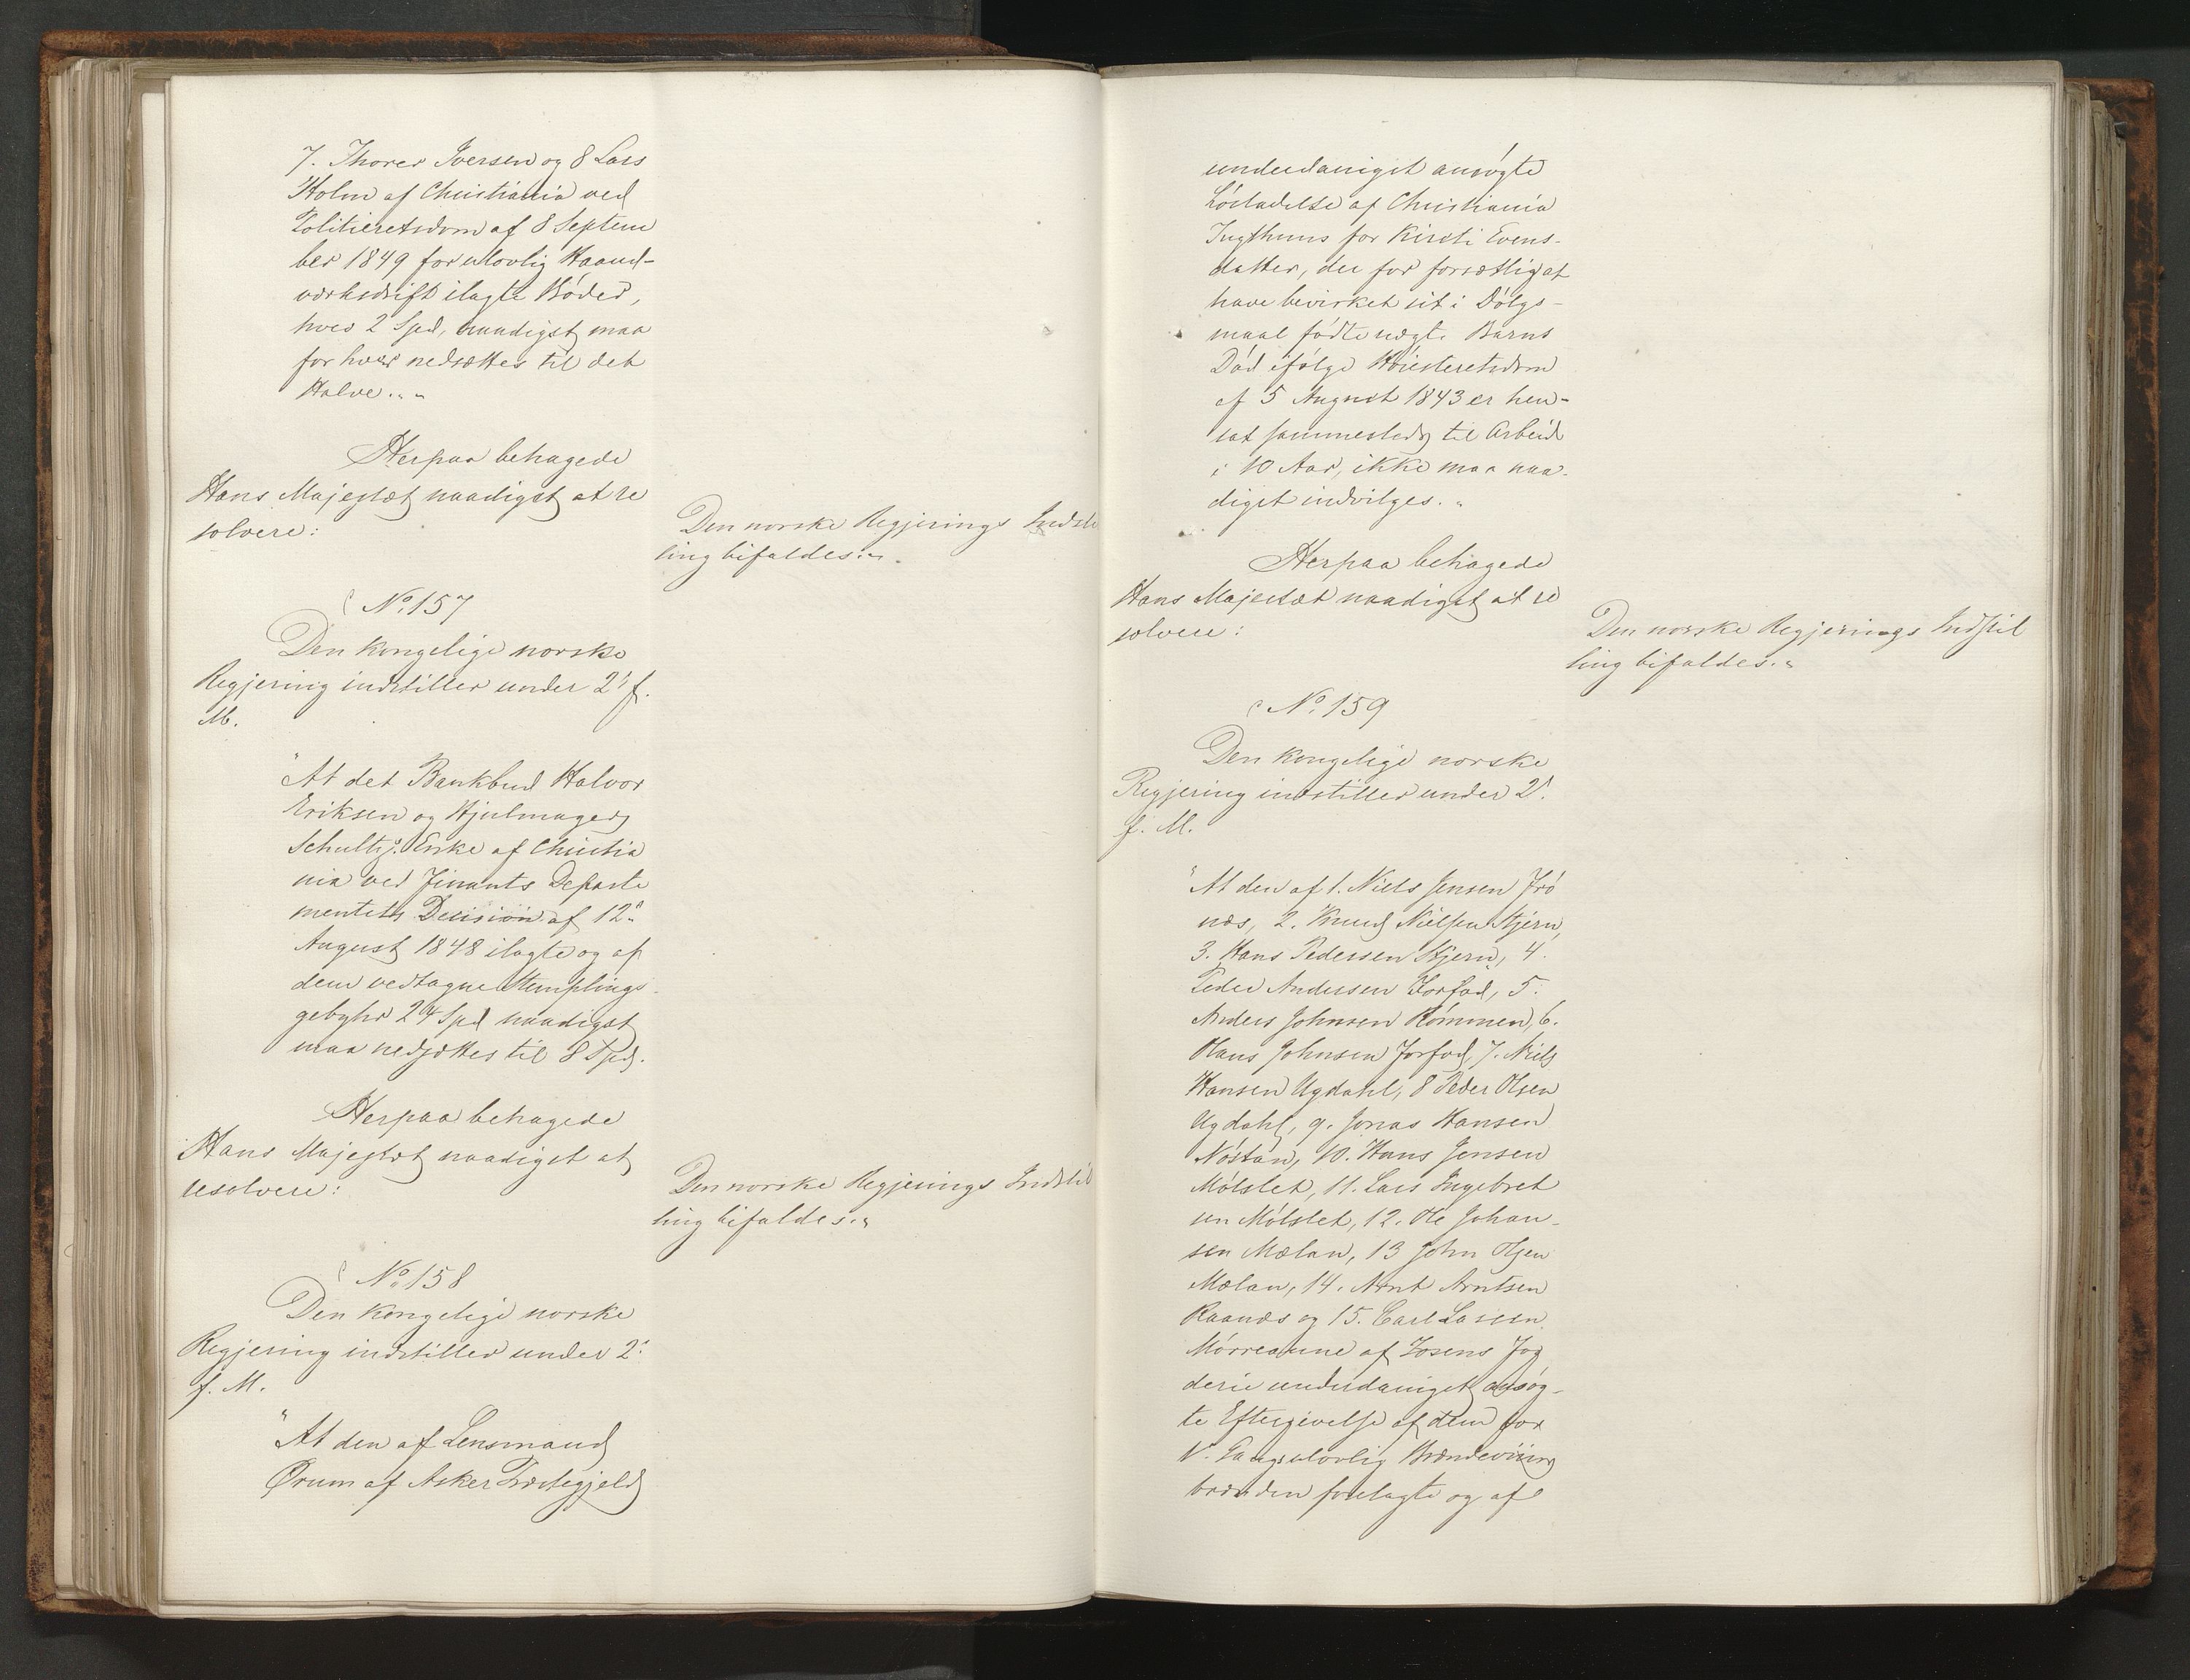 7. Thorer Iversen og 8 Lars
Holm af Christiania ved
Politieretsdom af 8 Septem
ber 1849 for ulovlig Haand-
værksdrift ilagte Bøder,
hver 2 Spd, naadigst maa
for hver nedsættes til det
Halve."
Herpaa behagede
Hans Majestæt naadigst at re
solvere:
Den norske Regjerings Indstil
ling bifaldes."
No. 157
Den kongelige norske
Regjering indstiller under 2' f.
M.
"At det Bankbud Halvor
Eriksen og Hjulmager
Schultz's Enke af Christia
nia ved Finants Departe
mentets Decision af 12'
August 1848 ilagte og af
dem vedtagne Stemplings-
gebyhr 24 Spd naadigst
maa nedsættes til 8 Spd.
Herpaa behagede
Hans Majestæt naadigst at
resolvere:
Den norske Regjerings Indstil
ling bifaldes."
No. 158
Den kongelige norske
Regjering indstiller under 2'
f. M.
"At den af Lensmand
Ørum af Asker Præstegjeld
underdanigst ansøgte
Løsladelse af Christiania
Tugthuus for Kirsti Evens-
datter, der for forsætlig at
have bevirket sit i Dølgs-
maal fødte uægte Barns
Død ifølge Høiesteretsdom
af 5 August 1843 er hen-
sat sammesteds til Arbeide
i 10 Aar, ikke maa naa-
digst indvilges."
Herpaa behagede
Hans Majestæt naadigst at re
solvere:
Den norske Regjerings Indstil
ling bifaldes."
No. 159
Den kongelige norske
Regjering indstiller under 2'
f. M.
"At den af 1. Niels Jensen Frø
næs, 2. Knud Nielsen Stjern,
3. Hans Pedersen Stjern, 4.
Peder Andersen Forfod, 5.
Anders Johnsen Rømmen, 6.
Hans Johnsen Forfod, 7. Niels
Hansen Ugdahl, 8 Peder Olsen
Ugdahl, 9. Jonas Hansen
Nøstan, 10. Hans Jensen
Mølslet, 11. Lars Ingebret
sen Mølslet, 12. Ole Johan-
sen Mælan, 13 John Olsen
Mælan, 14. Arnt Arntsen
Raanæs og 15. Carl Larsen
Mørreaune af Fosens Fog
derie underdanigst ansøg-
te Eftergivelse af dem for
Gang ulovlig Brændeviins
brænden forelagte og af